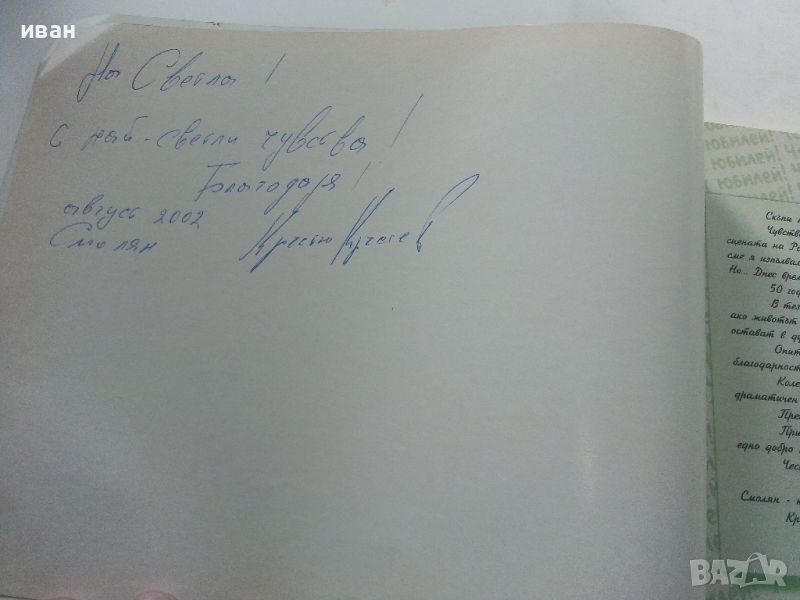 иван
На Светла!
С най-светли чувства!
Благодаря!
август 2002
Смолян Кръстю Кръстев
юбилей!
юбилей! Че
юбилей!
Скъпи
Чувств
сцената на Ро
сме я изпълвал
Но... Днес врем
50 год
В теж
ако животът
остават в ду
Опит
благодарност
Коле
драматичен
Пре
При
едно добро
Чес
Смолян -
Кр
BAZAR